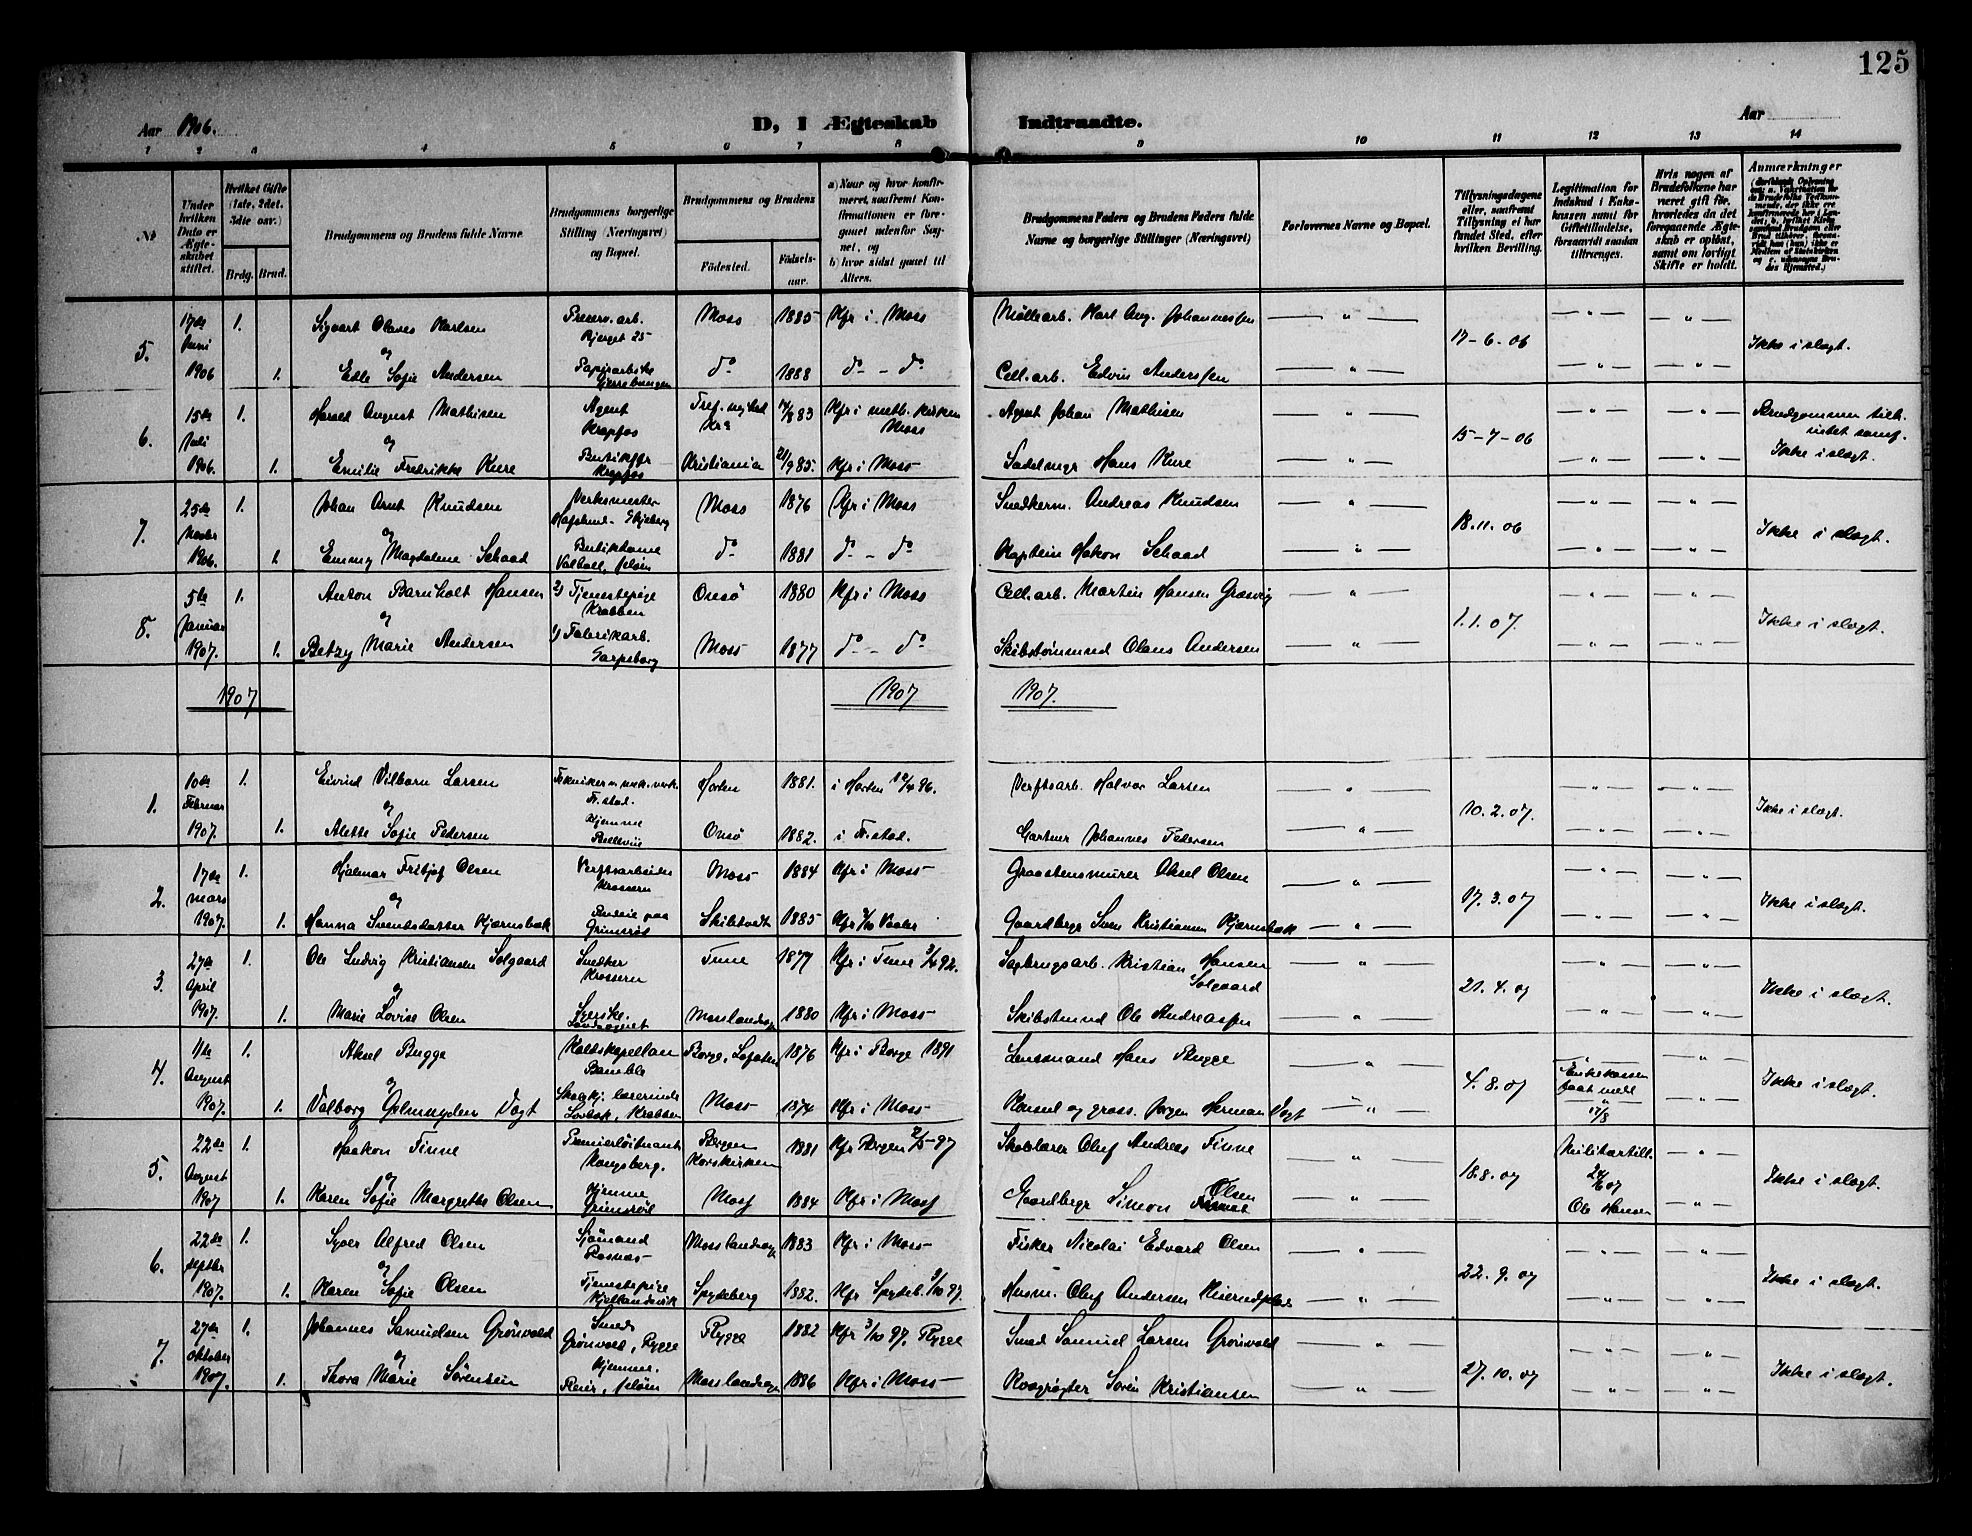 125
Aar 1906.
D, I Ægteskab Indtraadte.
Aar
1 2 3 4 5 6 7 8 9 10 11 12 13 14
№
Under hvilken Dato er Ægteskabet stiftet.
Hvilket Gifte (1ste, 2det, 3die osv.)
Brdg. Brud.
Brudgommens og Brudens fulde Navne
Brudgommens borgerlige Stilling (Næringsvei) og Bopæl.
Brudgommens og Brudens
Fødested. Fødselsaar.
a) Naar og hvor konfirmeret, saafremt Konfirmationen er foregaaet udenfor Sognet, og
b) hvor sidst gaaet til Alters.
Brudgommens Faders og Brudens Faders fulde Navne og borgerlige Stillinger (Næringsvei)
Forlovernes Navne og Bopæl.
Tillysningsdagene eller, saafremt Tillysning ei har fundet Sted, efter hvilken Bevilling.
Legitimation for Indskud i Enkekassen samt for Giftetilladelse, forsaavidt saadan tiltrænges.
Hvis nogen af Brudefolkene har været gift før, hvorledes da det foregaaende Ægteskab er opløst, samt om lovligt Skifte er holdt.
Anmærkninger
5. 17de Juni 1906 1. Sigvart Olaves Karlsen Preserv.arb. Bjerget 25 Moss 1885 Kfr i Moss Møllearb. Karl Aug. Johannessen — " — 17-6-06 — " — — " — Ikke i slegt.
og
1. Edle Sofie Andersen Papirarbske 1888 do - do Cell.arb. Edvin Anderssen — " — — " — — " —
6. 15de Juli 1906. 1. Harald August Mathisen Agent Krapfos 14/8 83 Kfr i meth. kirken Moss Agent Johan Mathisen — " — 15-7-06 — " — — " — Brudgommen
Ikke i slegt.
og
1. Emilie Fredrikke Kure Krapfos Kristiania 21/9 85. Kfr i Moss Sadelmgr Hans Kure — " — — " — — " —
7. 25de Novbr 1906. 1. Johan Arnt Knudsen Verksmester Hafslund - Skjeberg Moss 1876 Kfr i Moss Snedkerm. Andreas Knudsen — " — 18.11.06 — " — — " — Ikke i slegt.
og
1. Emmy Magdalene Schaad Butikdame Valhall, Jeløen do 1881 do - do Kaptein Hakon Schaad — " — — " — — " —
8. 5te Januar 1907. 1. Anton Barnholt Hansen 2) Tjenestepige Krabben Onsø 1880 Kfr i Moss Cell.arb. Martin Hansen Græsvig — " — 1.1.07. — " — — " — Ikke i slegt.
og
1. Betzy Marie Andersen 1) Fabrikarb. Sarpsborg Moss 1877 do - do Skibstømmmd Olaus Andersen — " — — " — — " —
1907 1907 1907.
1. 10de Februar 1907. 1. Eivind Vilborn Larsen Tekniker Fr.stad. Horten 1881. i Horten 96. Verftsarb. Halvor Larsen — " — 10.2.07. — " — — " — Ikke i slegt.
og
1. Alette Sofie Pedersen Hjemme Bellevue Onsø 1882. i Fr.stad. Gartner Johannes Pedersen — " — — " — — " —
2. 17de mars 1907. 1. Hjalmar Fritjof Olsen Verftsarbeider Krossern Moss 1884 Kfr i Moss Graastensmurer Aksel Olsen — " — 17.3.07 — " — — " — Ikke i slegt.
og
1. Hanna Svendsdatter Kjærnsbæk Budeie paa Grimsrøl Skibtvedt 1885 Kfr Vaaler Gaardbrgr Sven Kristiansen Kjærnsbæk — " — — " — — " —
3. 27de April 1907. 1. Ole Ludvig Kristiansen Solgaard Snedker Krossern Tune 1877 Kfr i Tune 92. Sagbrugsarb. Kristian Hansen Solgaard — " — 21.4.07 — " — — " — Ikke i slegt.
og
1. Marie Lovise Olsen Syerske. Landsognet Mosslandsogn 1880 Kfr i Moss Skibstmmd Ole Andreassen — " — — " — — " —
4. 11te August 1907. 1. Aksel Bugge Residskapellan Bamble Borge, Lofoten 1876 Kfr i Borge 1891 Lensmand Hans Bugge — " — 4.8.07 Enkekassen 17/8 — " — Ikke i slegt.
og
1. Valborg Gelmuyden Vogt lærerinde Krabben Moss 1874 Kfr i Moss Konsul og gross. Jørgen Herman Vogt — " — — " —
5. 22de August 1907 1. Haakon Finne Premierløitnant Kongsberg. Bergen Korskirken 1881 Kfr Bergen 97 Skolelærer Oluf Andreas Finne — " — 18.8.07 Militærtill. Ole Hansen — " — Ikke i slegt.
og
1. Karen Sofie Margrethe Olsen Hjemme Grimsrøl Moss 1884 Kfr i Moss Gaardbrgr Simon Olsen — " — — " —
6. 22de septbr 1907. 1. Syver Alfred Olsen Sjømand Rosnæs Mosslandsogn 1883 Kfr i Moss Fisker Nicolai Edvard Olsen — " — 22.9.07 — " — — " — Ikke i slegt.
og
1. Karen Sofie Olsen Tjenestepige Kjellandsvik Spydeberg 1882. Kfr Spydeb. 97. Husm. Oluf Andersen — " — — " — — " —
7. 27de oktober 1907. 1. Johannes Samuelsen Grønvold Smed Grønvold, Rygge Rygge 1882 Kfr 3/10 97. Rygge Smed Samuel Larsen Grønvold — " — 27.10.07 — " — — " — Ikke i slegt.
og
1. Thora Marie Sørensen Hjemme. Reier, Jeløen Mosslandsogn 1886 Kfr i Moss Kvægrøgter Søren Kristiansen — " — — " — — " —